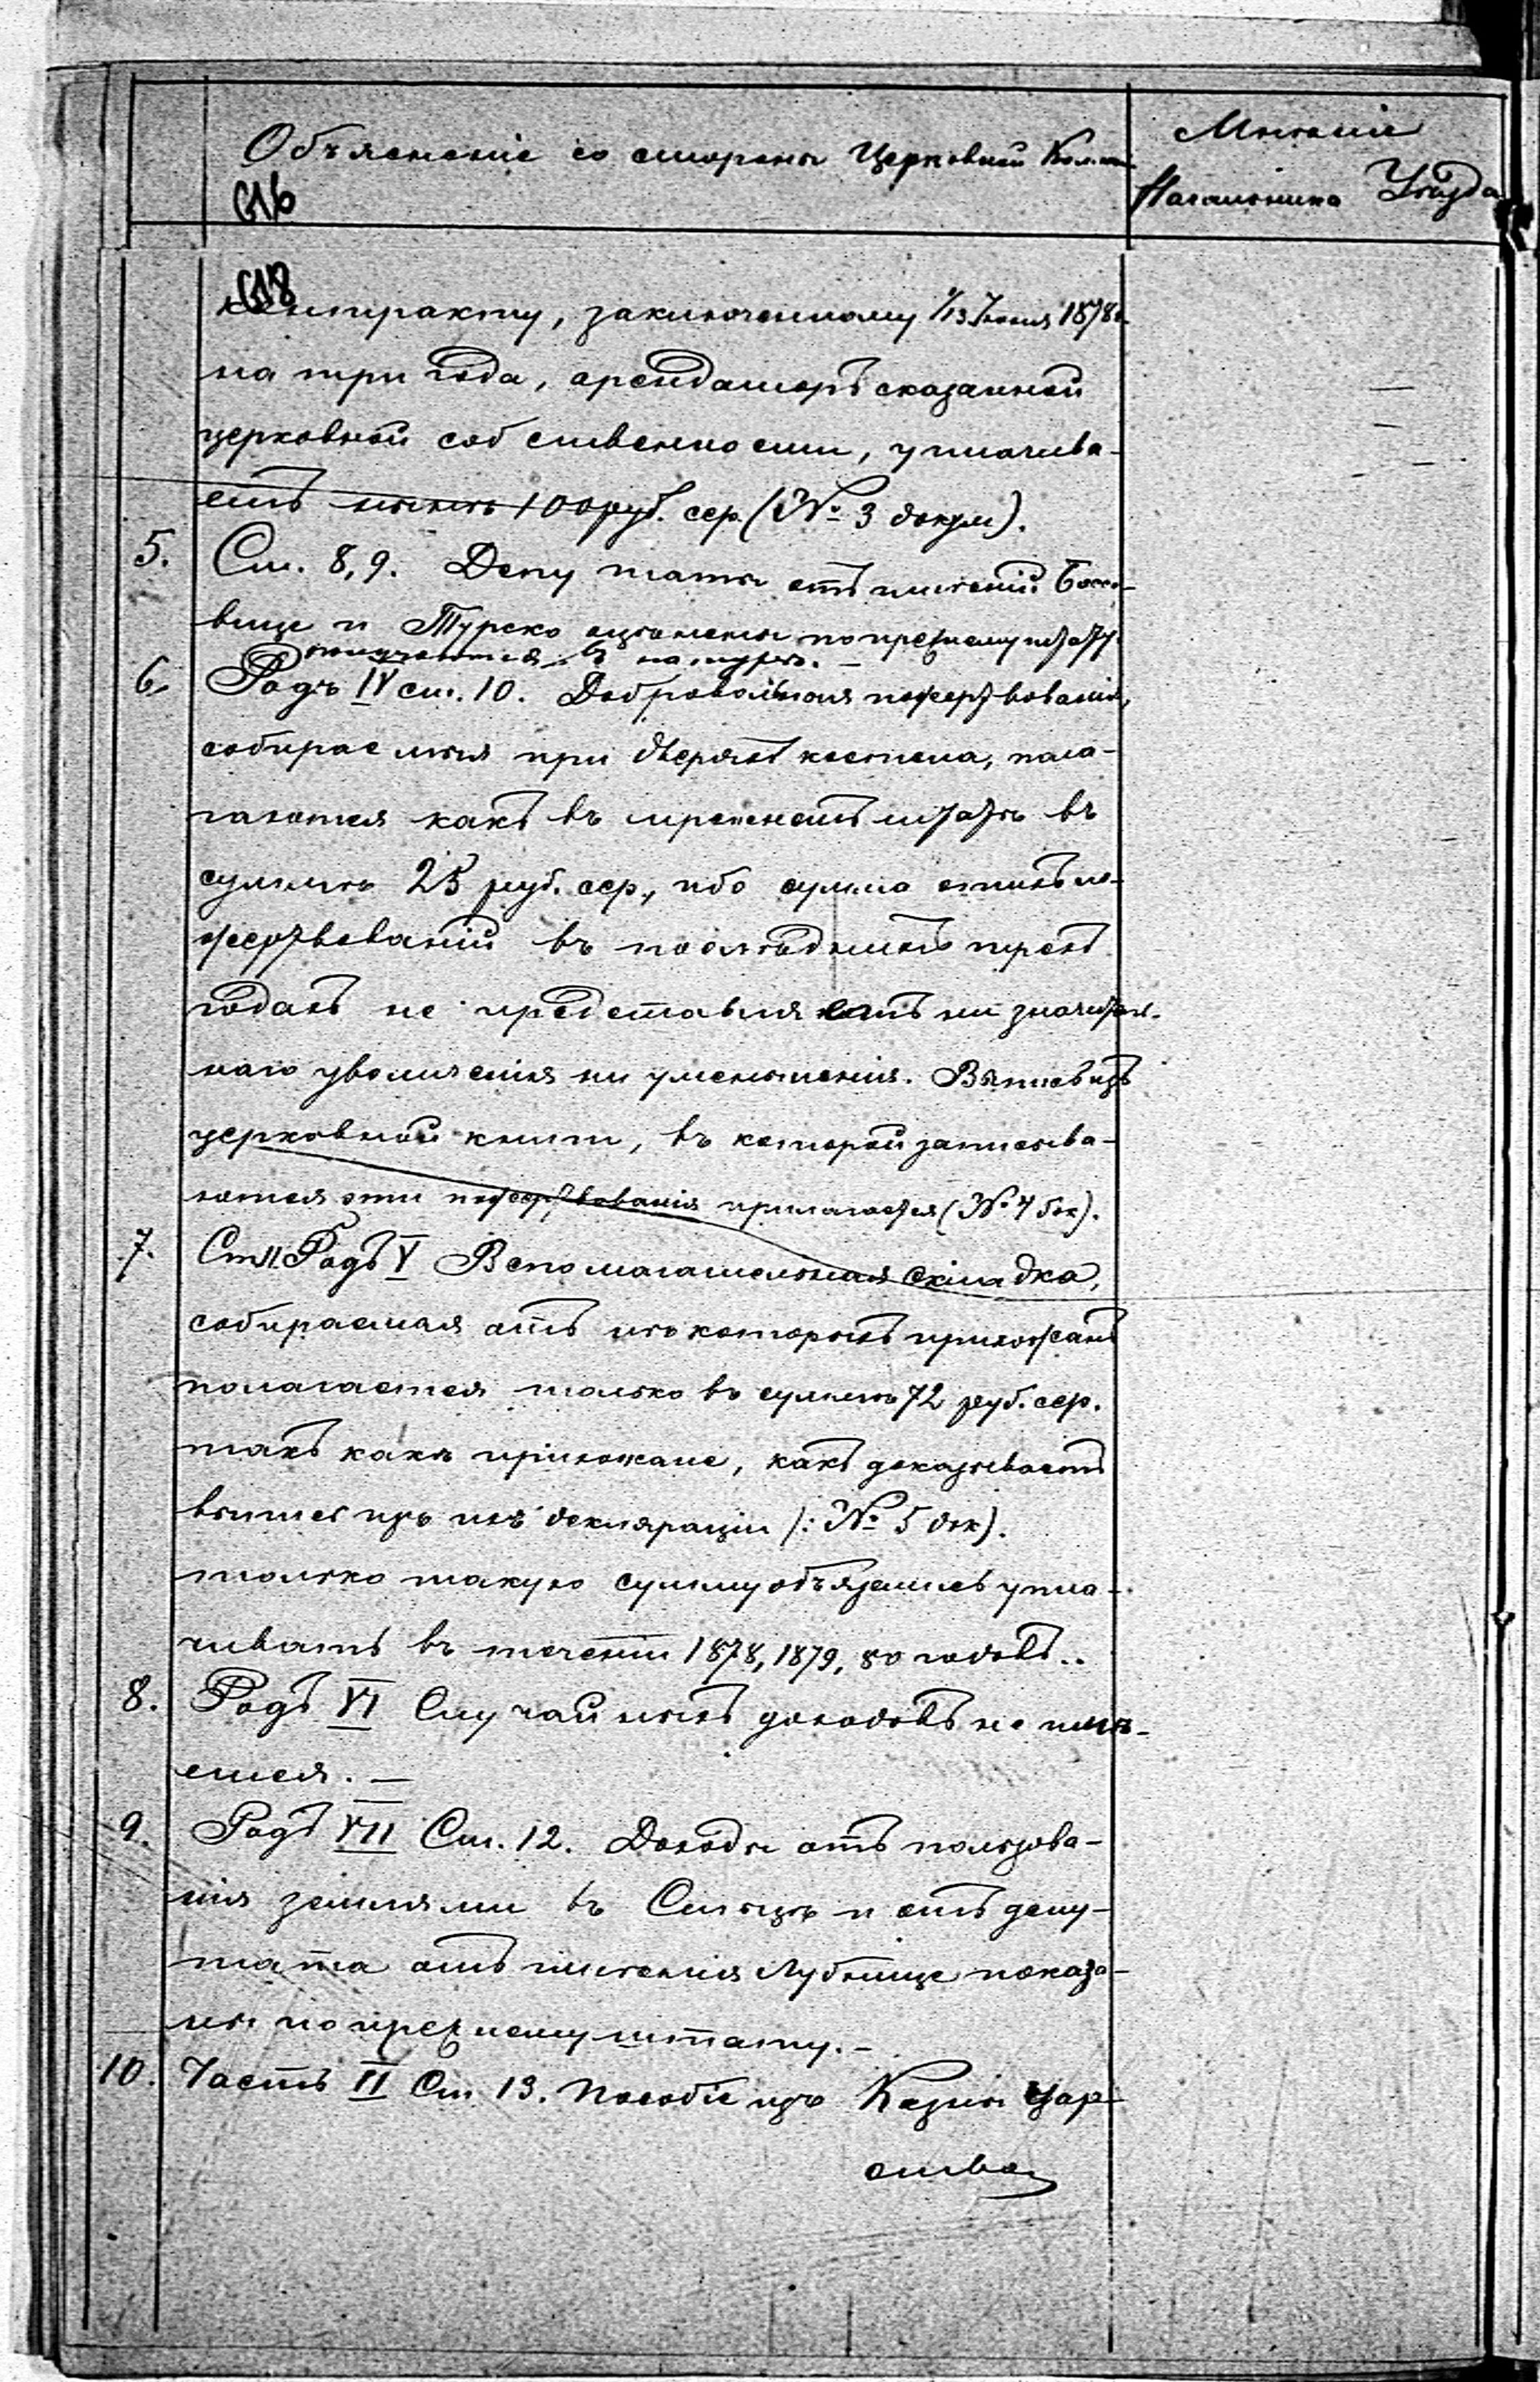 Объясненіе со стороны Церковной Ком
Мнѣніе
Начальника Уѣзда
616
618
контракту, заключенному 1/13 Іюня 1878 г.
на три года, арендаторъ сказанной
церковной собственности, уплачива-
етъ 100 руб. сер. (№ 3 докум).
5. См. 8, 9. Депутаты отъ имѣній
вице и Турско оцѣнены по прежнему штату
въ натурѣ. —
6. Родъ IV см. 10. Добровольныя пожертвованія,
собираемыя при дверяхъ костела, пола-
гаются какъ въ прежнемъ штатѣ въ
суммѣ 25 руб. сер., ибо сумма этихъ по-
жертвованій въ послѣднихъ трехъ
годахъ не представляетъ ни значитель-
наго увеличенія ни уменьшенія. Выпись изъ
церковной книги, въ которой записыва-
ются эти пожертвованія прилагается (№ 4 док).
7. Ст 11. Родъ V Вспомагательная складка,
собираемая отъ нѣкоторыхъ прихожанъ
полагается только въ суммѣ 72 руб. сер.
такъ какъ прихожане, какъ доказываетъ
выпись изъ ихъ декляраціи (: № 5 док).
только такую сумму обязались упла-
чивать въ теченіи 1878, 1879, 80 годовъ..
8. Родъ VI Случайныхъ доходовъ не имѣ-
ется. —
9. Родъ VII См. 12. Доходы отъ пользова-
нія землями въ и отъ депу-
тата отъ имѣнія Лубнице показа-
ны по прежнему штату. —
10. Часть II См. 13. Пособіе изъ Казны Цар-
ства